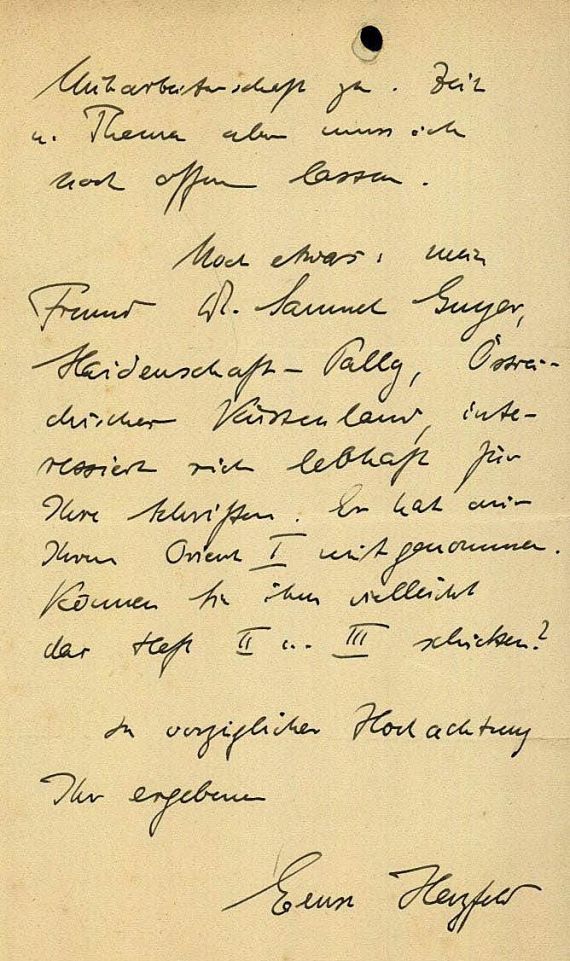 Mitarbeiterschaft zu. Zeit
u. Thema aber muss ich
noch offen lassen.
Noch etwas: mein
Freund Dr. Samuel Guyer,
Haidenschaft-Pallg, Östrei-
chisches Küstenland, inte-
ressiert sich lebhaft für
Ihre Schriften. Er hat mir
Ihren Orient I mitgenommen.
Können Sie ihm vielleicht
das Heft II u. III schicken?
In vorzüglicher Hochachtung
Ihr ergebener
Ernst Herzfeld